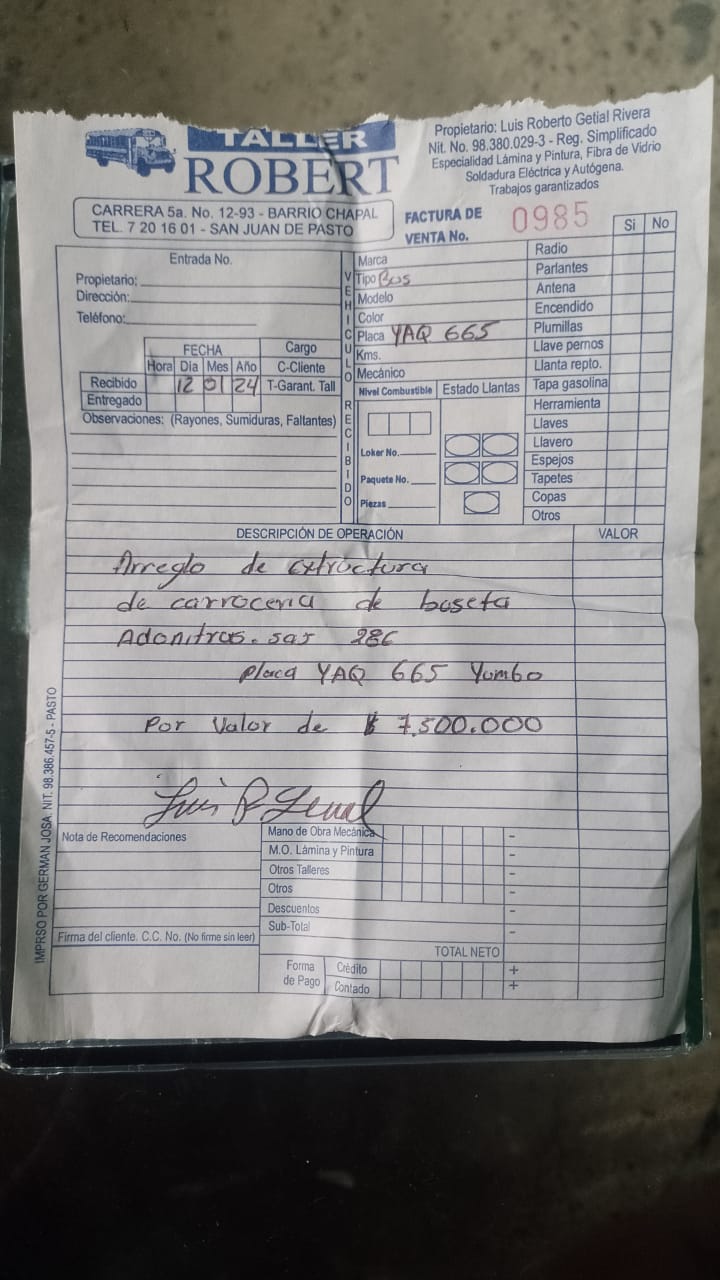 TALLER
ROBERT
Propietario: Luis Roberto Getial Rivera
Nit. No. 98.380.029-3 - Reg. Simplificado
Especialidad Lámina y Pintura, Fibra de Vidrio
Soldadura Eléctrica y Autógena.
Trabajos garantizados
CARRERA 5a. No. 12-93 - BARRIO CHAPAL
TEL. 7 20 16 01 - SAN JUAN DE PASTO
FACTURA DE
VENTA No.
0985
Entrada No.
Propietario:
Dirección:
Teléfono:
FECHA
Cargo
Hora Día Mes Año
C-Cliente
Recibido 12 01 24
T-Garant. Tall
Entregado
Observaciones: (Rayones, Sumiduras, Faltantes)
VEHICULO RECIBIDO
Marca
Tipo Bus
Modelo
Color
Placa YAQ 665
Kms.
Mecánico
Nivel Combustible
Estado Llantas
Loker No.
Paquete No.
Piezas
Si No
Radio
Parlantes
Antena
Encendido
Plumillas
Llave pernos
Llanta repto.
Tapa gasolina
Herramienta
Llaves
Llavero
Espejos
Tapetes
Copas
Otros
DESCRIPCIÓN DE OPERACIÓN
VALOR
Arreglo de extructura
de carroceria de buseta
sas 286
Placa YAQ 665 Yumbo
Por Valor de $ 7.500.000
Luis R
Nota de Recomendaciones
Firma del cliente. C.C. No. (No firme sin leer)
Mano de Obra Mecánica -
M.O. Lámina y Pintura -
Otros Talleres -
Otros -
Descuentos -
Sub-Total -
TOTAL NETO
Forma
de Pago
Crédito +
Contado +
IMPRSO POR GERMAN JOSA. NIT. 98.386.457-5 - PASTO